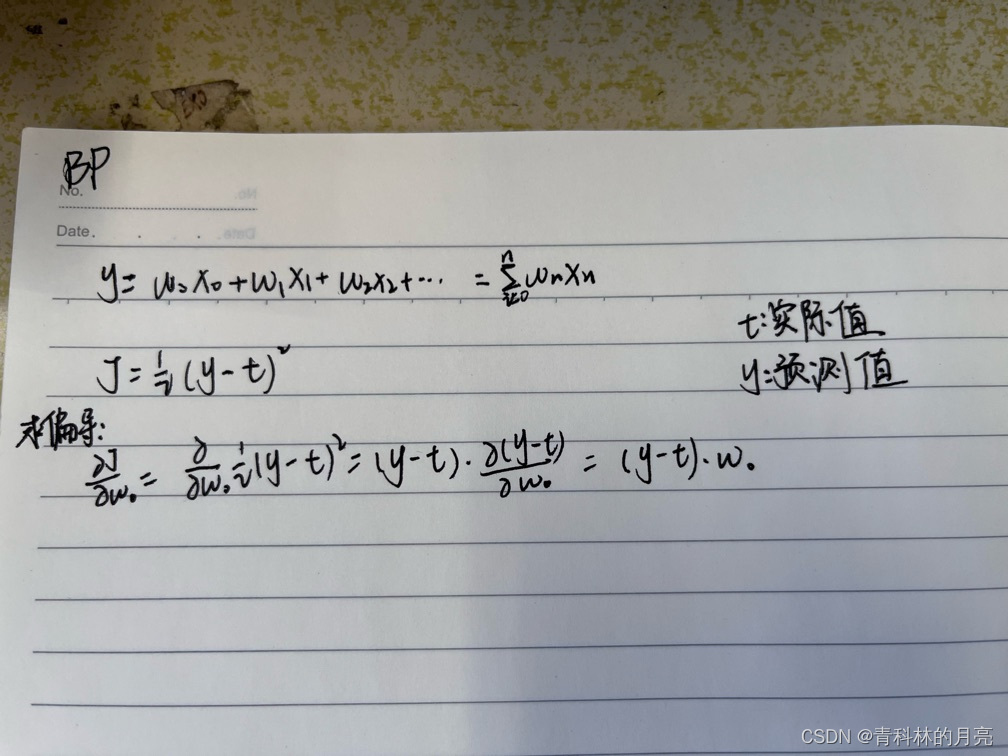 BP
No.
Date.
y = w₀x₀ + w₁x₁ + w₂x₂ + ⋯ = ∑ⁿᵢ₌₀ wₙxₙ
t:实际值
J = ½ (y - t)²
y:预测值
求偏导:
∂J/∂w₀ = ∂/∂w₀ ½ (y - t)² = (y - t) · ∂(y - t)/∂w₀ = (y - t) · w₀
CSDN @青科林的月亮